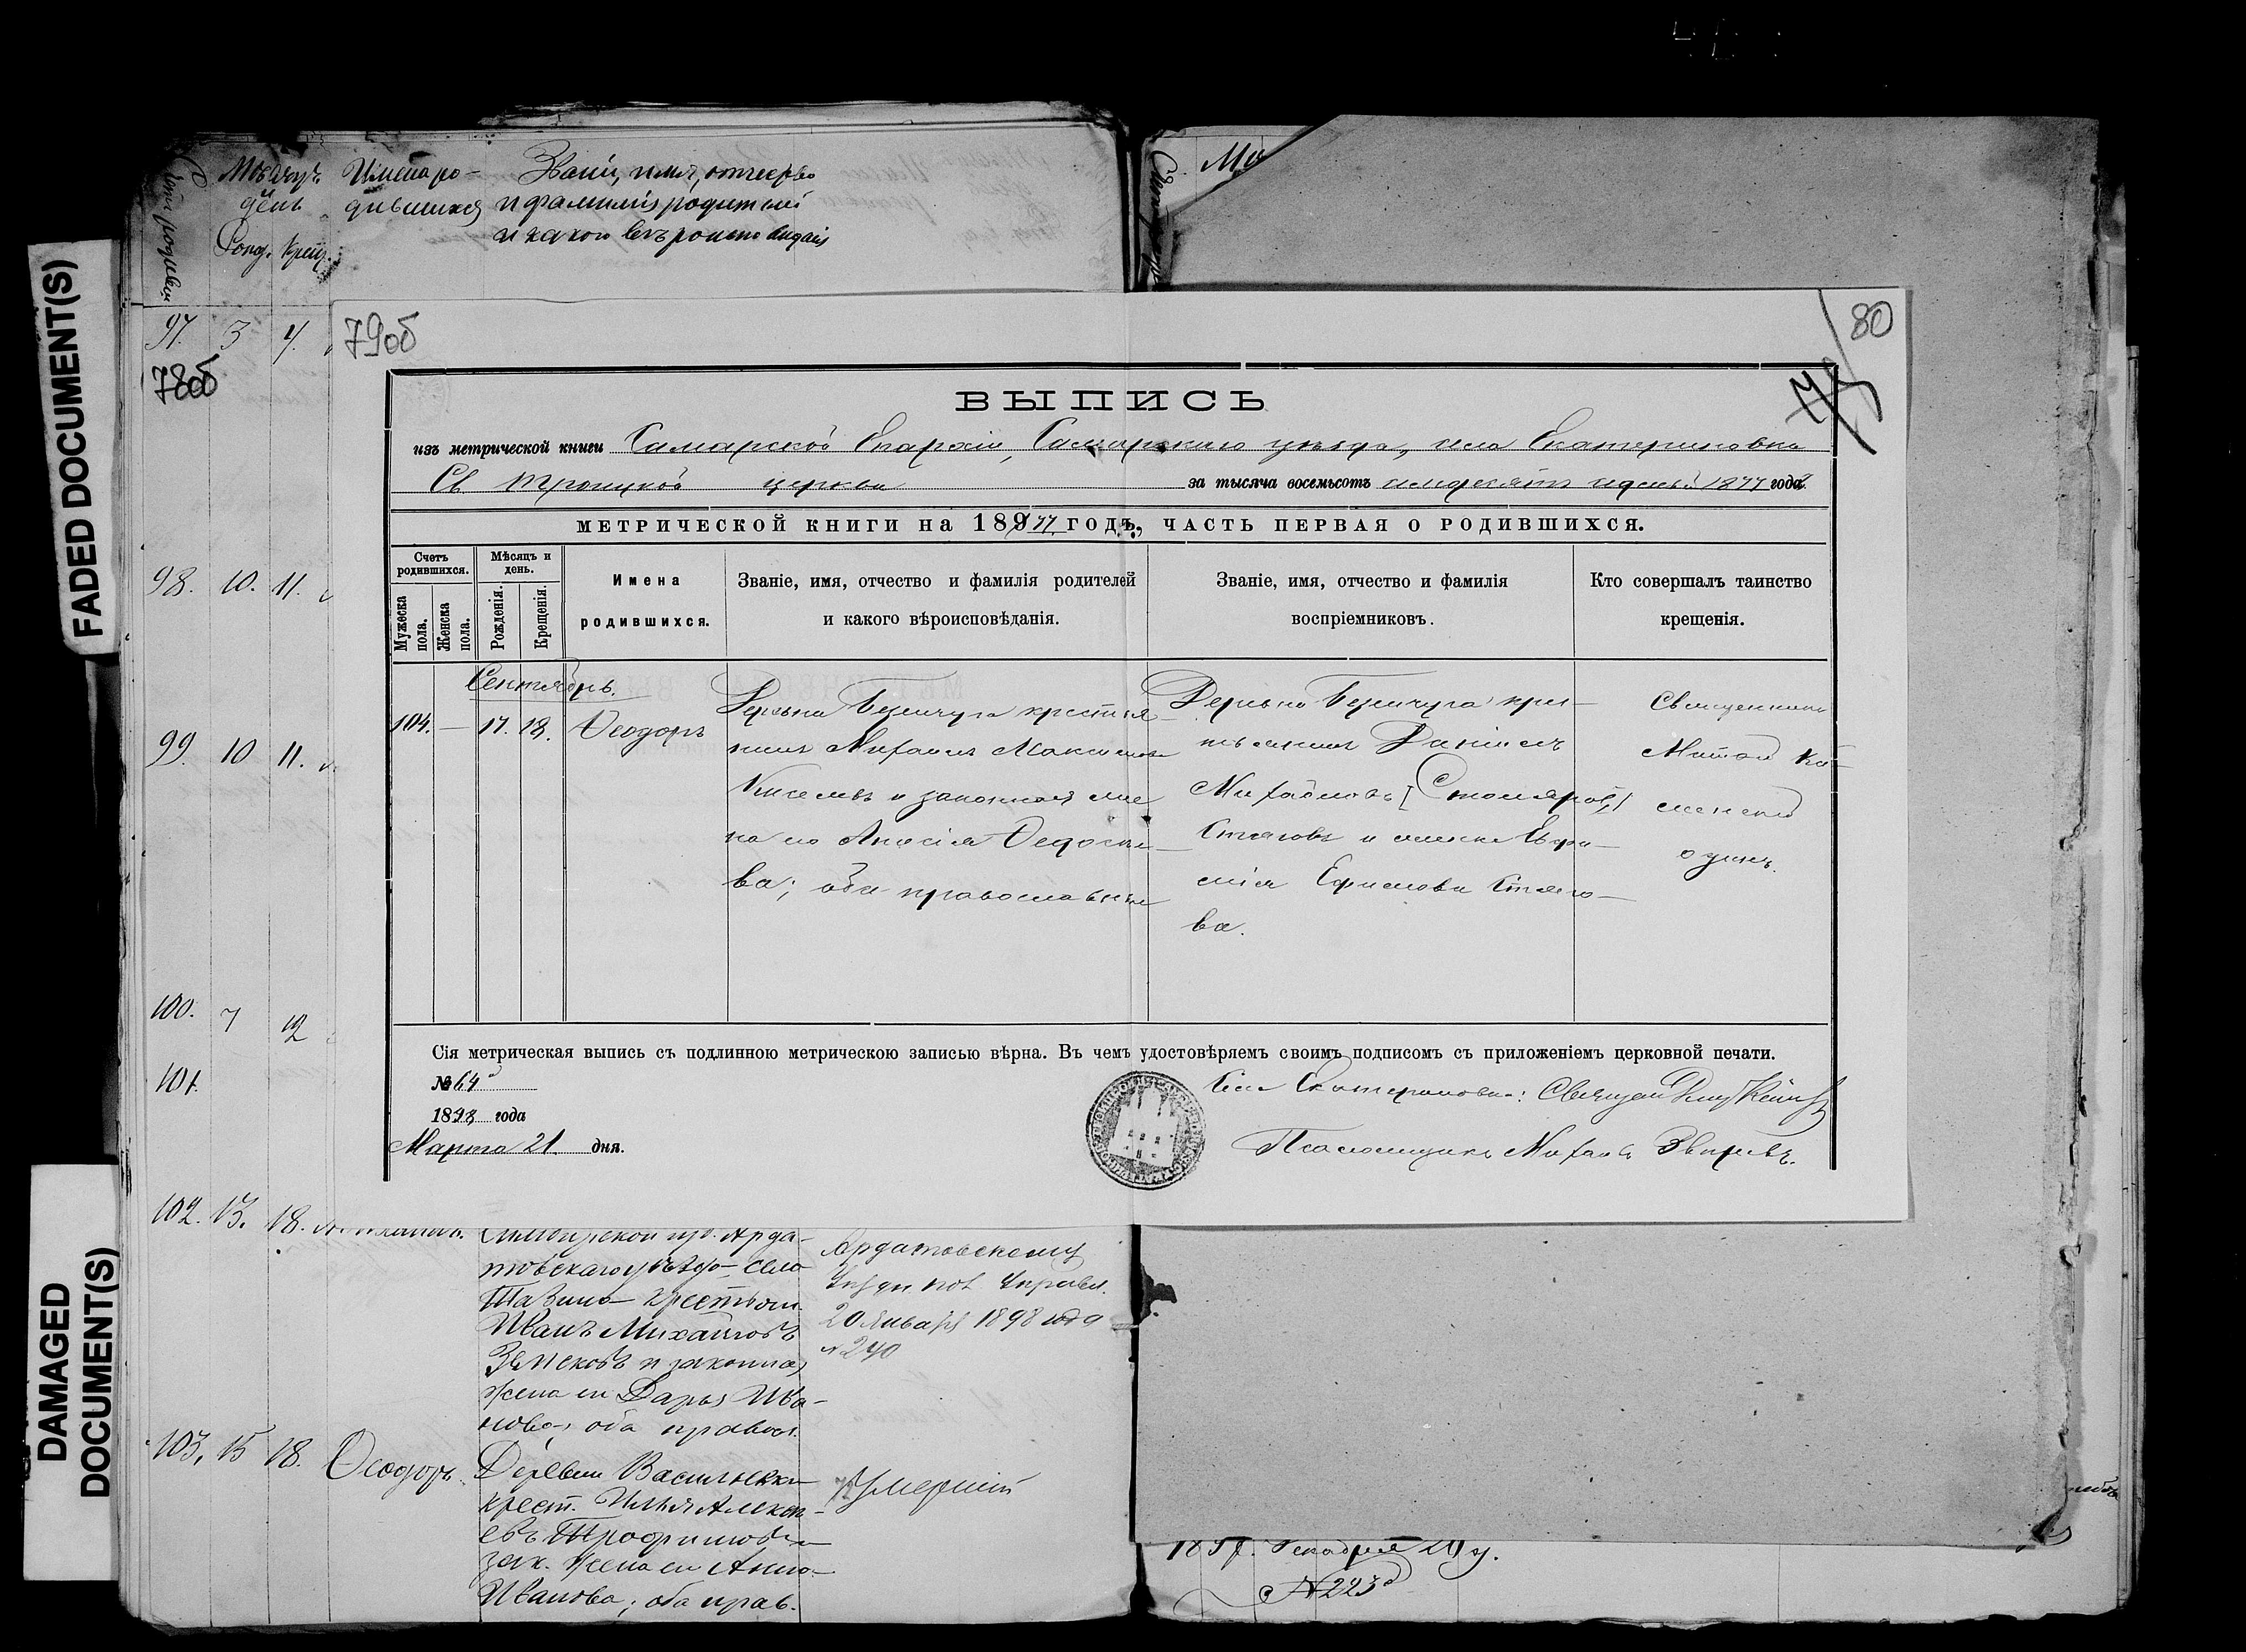 FADED DOCUMENT(S)
DAMAGED
DOCUMENT(S)
Мѣсяцъ
день
Рожд. Крещ.
Имена ро-
дившихся
Званіе, имя, отчество
и фамилія родителей
и какого вѣроисповѣданія
97. 3 4.
78об
98. 10. 11.
99. 10 11.
100. 7 12
101.
79об
80
ВЫПИСЬ
изъ метрической книги Самарской Епархіи, Самарскаго уѣзда, села Екатериновки
Св. Троицкой церкви за тысяча восемьсотъ семьдесятъ седьмой 1877 года
МЕТРИЧЕСКОЙ КНИГИ на 1877 ГОДЪ, ЧАСТЬ ПЕРВАЯ О РОДИВШИХСЯ.
Счетъ родившихся.
Мужеска пола.
Женска пола.
Мѣсяцъ и день.
Рожденія.
Крещенія.
Имена
родившихся.
Званіе, имя, отчество и фамилія родителей
и какого вѣроисповѣданія.
Званіе, имя, отчество и фамилія
воспріемниковъ.
Кто совершалъ таинство
крещенія.
Сентябрь.
104. — 17. 18. Ѳеодоръ
Деревни Безенчуга крестья-
нинъ Михаилъ Максимовъ
Киселевъ и законная же
на его Анисія Ѳедосѣе-
ва; оба православные
Деревни Безенчуга крес-
тьянинъ Даніилъ
Михайловъ [Столяровъ]
Стяговъ и жена Евфи-
мія Ефимова Стяго-
ва.
Священникъ
Ка-
менскій
одинъ.
Сія метрическая выпись съ подлинною метрическою записью вѣрна. Въ чемъ удостовѣряемъ своимъ подписомъ съ приложеніемъ церковной печати.
№ 64
1898 года
Марта 21. дня.
Села Екатериновки: Священ
Псаломщикъ Михаилъ Звѣревъ.
102. 13. 18.
Симбирской губ. Арда-
товскаго уѣзда села
крестьян.
Иванъ Михайловъ
и законная
жена его Дарья Ива-
нова, оба правосл.
Ардатовскому
Уѣздн. Управл.
20 Января 1898 года
№ 240
103. 15 18. Ѳеодоръ
Деревни Васильевки
крест. Илья Алексѣ-
евъ Трофимовъ и
зак. жена его Анна
Иванова; оба прав.
Умершій
Декабря
№ 223